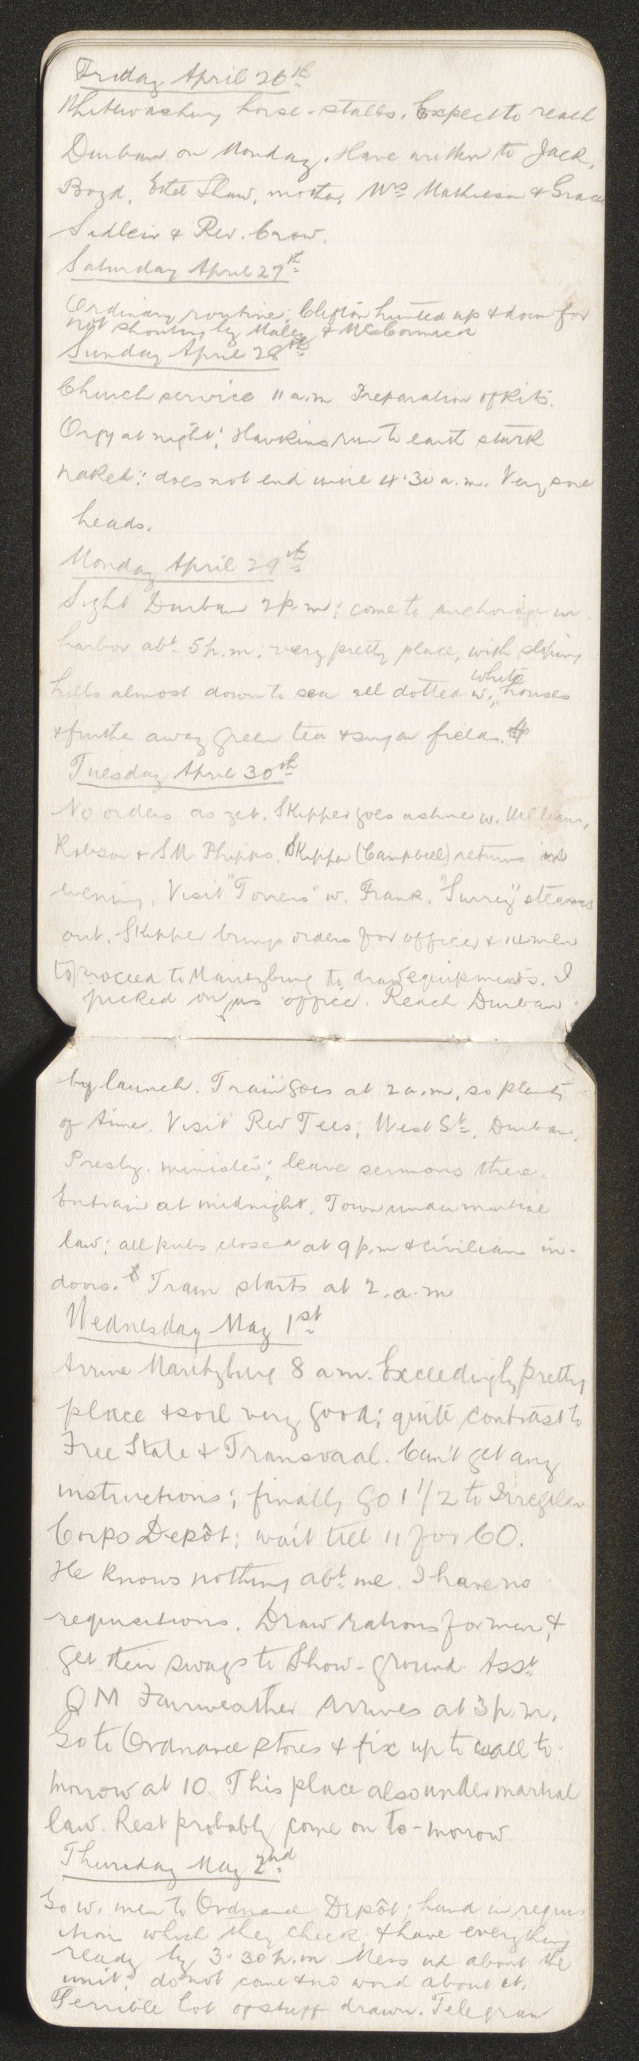 Friday April 26th
Whitewashing horse-stalls. Expect to reach
Durban on Monday. Have written to Jack,
Boyd, Ethel Shaw, mother, Mrs Mathieson & Grace
& Rev. Crow.
Saturday April 27th
Ordinary routine; Clifton hunted up & down for
not shouting by Maley & McCormack
Sunday April 28th
Church service 11 a.m. Preparation of kits.
Orgy at night; Hawkins run to earth stark
naked; does not end until 4.30 a.m. Very sore
heads.
Monday April 29th
Sight Durban 2 p.m; come to anchorage in
harbor abt 5 p.m; very pretty place, with sloping
hills almost down to sea all dotted w. white houses
& further away green tea & sugar fields.
Tuesday April 30th
No orders as yet. Skipper goes ashore w. Williams,
Robson & SM Phipps. Skipper (Campbell) returns in
evening. Visit "Torrens" w. Frank. "Surrey" steams
out. Skipper brings orders for officer & 14 men
to proceed to Maritzburg to draw equipments. I
picked on as officer. Reach Durban
by launch. Train goes at 2 a.m, so plenty
of time. Visit Rev Tees, West St, Durban,
Presby. minister; leave sermons there.
Entrain at midnight. Town under martial
law; all pubs closed at 9 p.m & civilians in-
doors. Train starts at 2.a.m
Wednesday May 1st
Arrive Maritzburg 8 am. Exceedingly pretty
place & soil very good; quite contrast to
Free State & Transvaal. Can't get any
instructions; finally go 1 1/2 to Irregular
Corps Depôt; wait till 11 for CO.
He knows nothing abt me. I have no
requisitions. Draw rations for men, &
get their swags to Show-ground. Asst
QM Fairweather arrives at 3 p.m.
Go to Ordnance stores & fix up to call to-
morrow at 10. This place also under martial
law. Rest probably come on to-morrow
Thursday May 2nd
Go w. men to Ordnance Depôt; hand in requis-
ition which they check, & have everything
ready by 3.30 p.m. about the
unit; do not come & no word about it.
Terrible lot of stuff drawn. Telegram